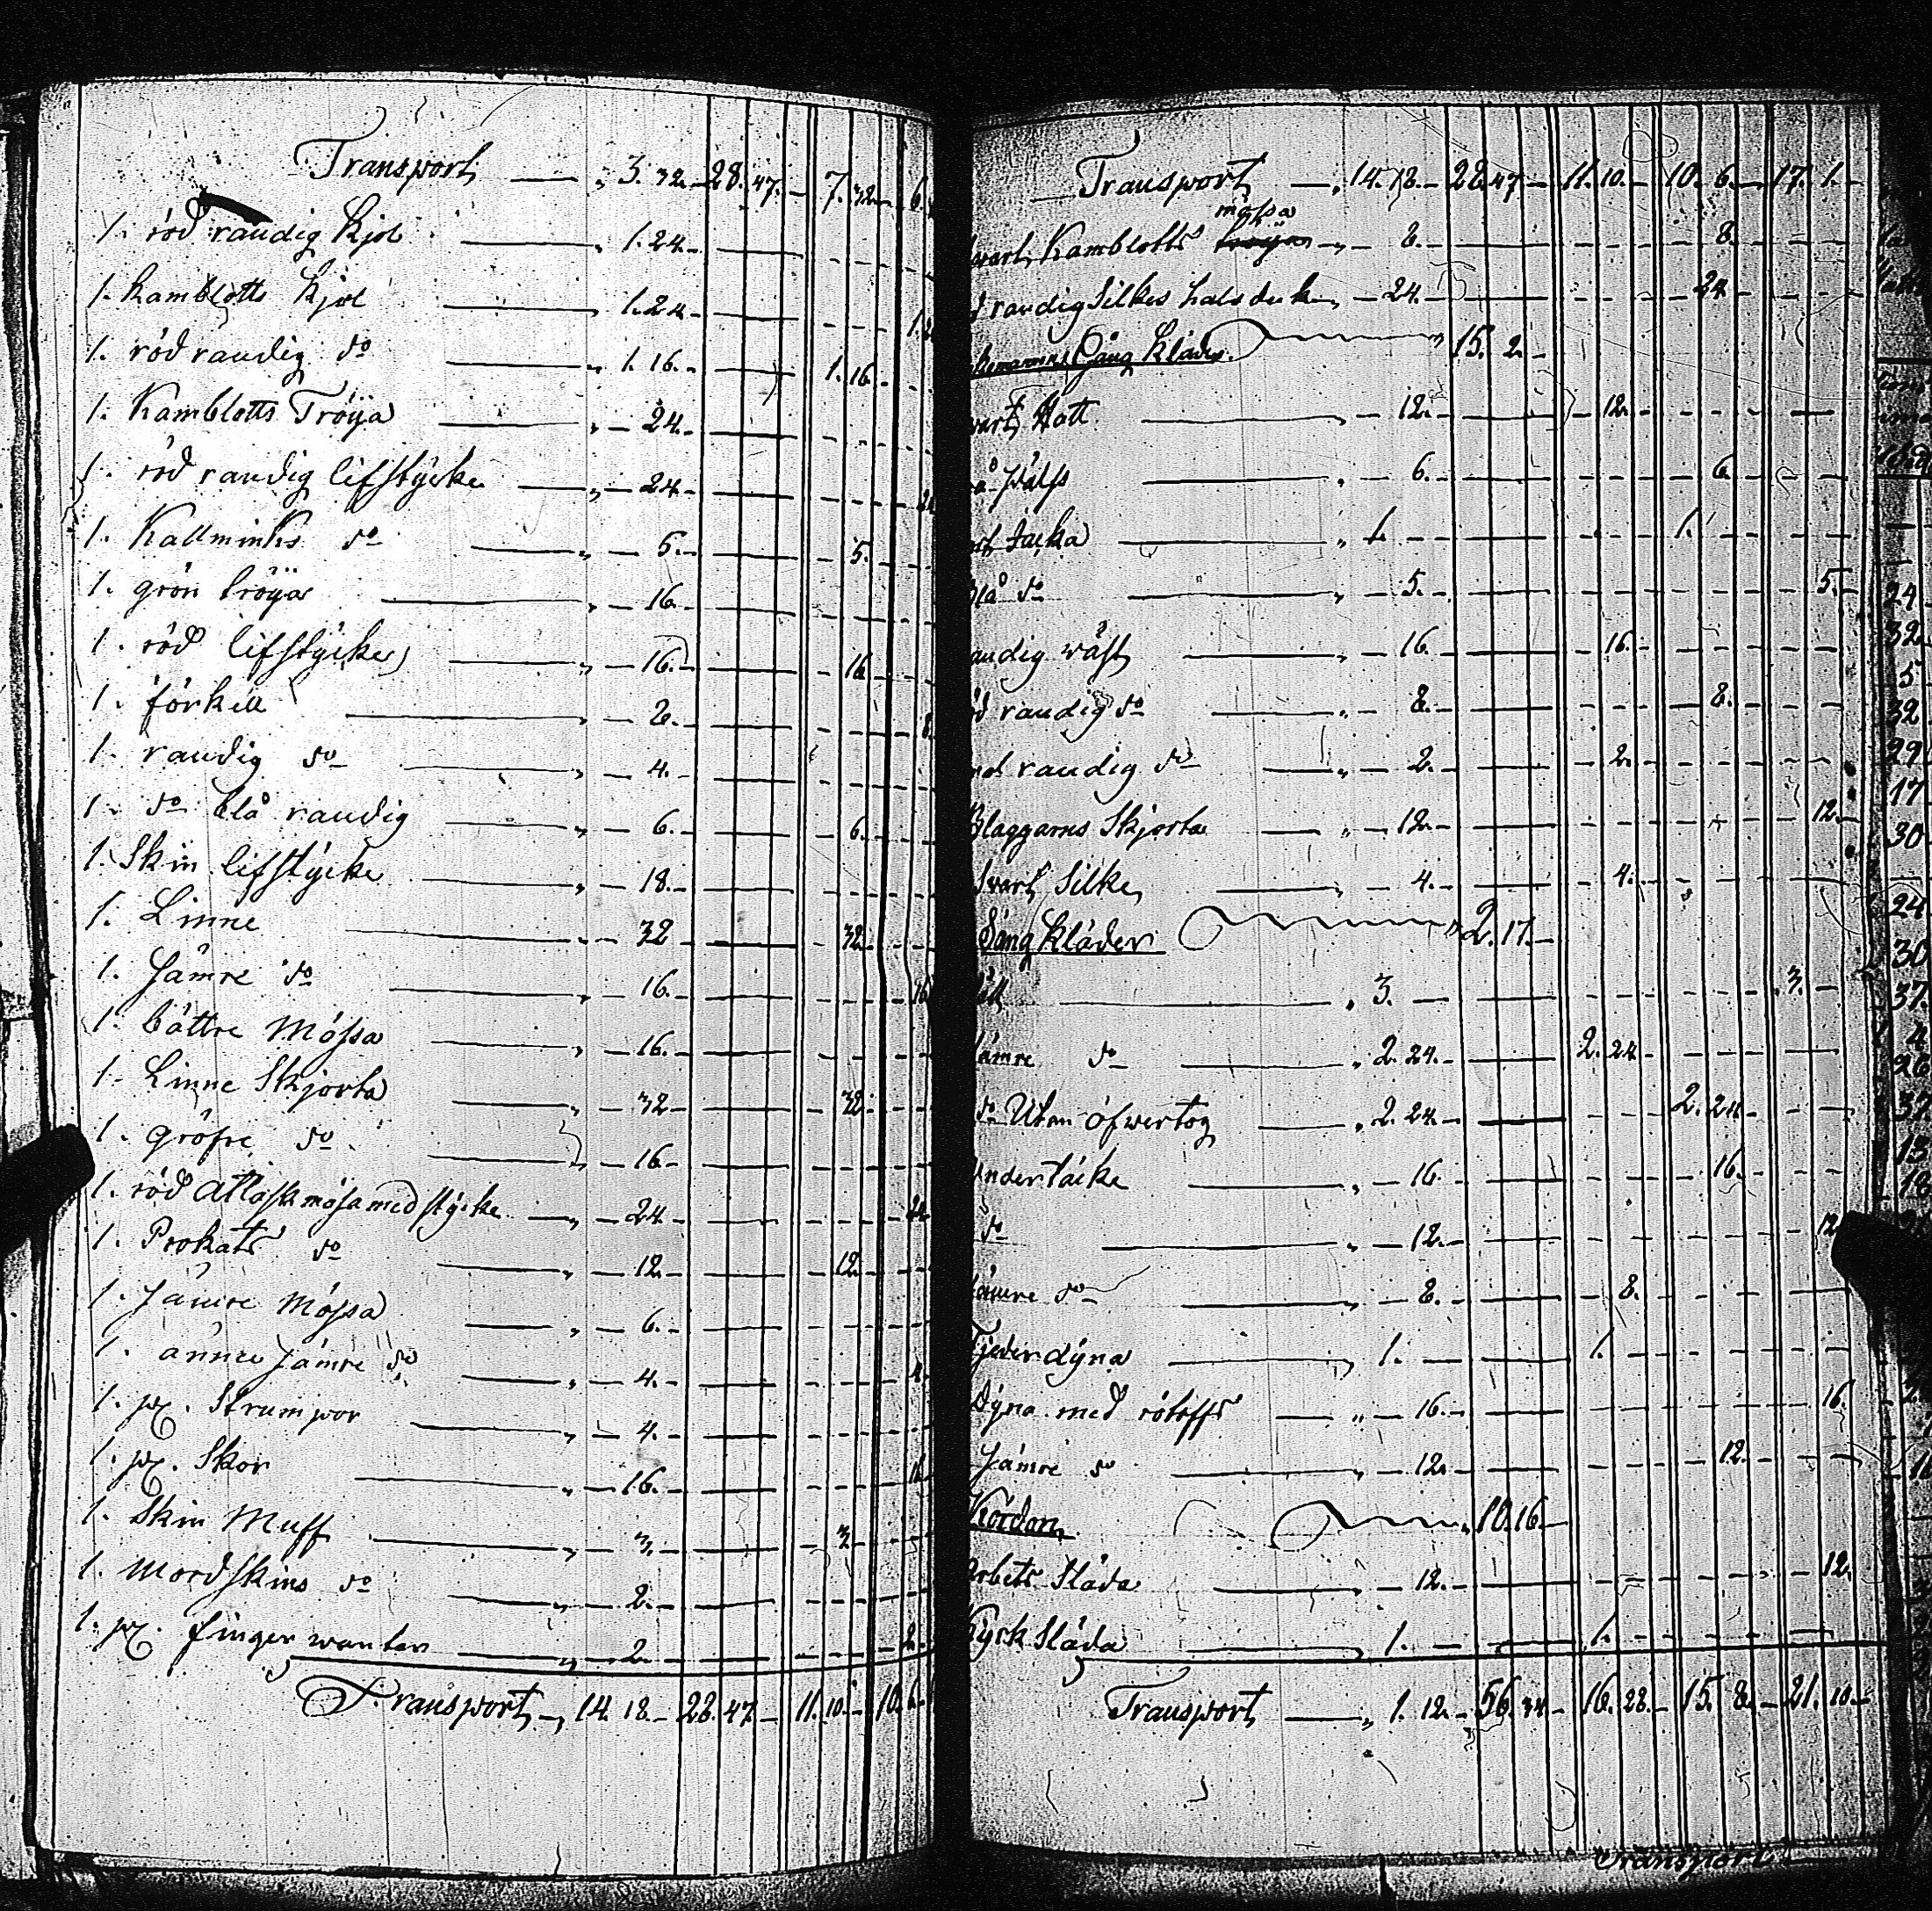 Transport — „ 3. 32. – 28. 47. – 7. 32. – 6.
1. röd randig Kjol — „ 1. 24. –
1. Kamblotts Kjol — „ 1. 24. – 1.
1. röd randig do — „ 1. 16. – 1. 16. –
1. Kamblotts Tröÿa — „ – 24. –
1. röd randig lifstÿcke — „ – 24. –
1. Kallminks do — „ – 5. – 5. –
1. grön tröÿa — „ – 16. –
1. röd lifstÿcke — „ – 16. – 16. –
1. förkill — „ – 2. –
1. randig do — „ – 4. –
1. do blå randig — „ – 6. – 6. –
1. Skin lifstÿcke — „ – 18. –
1. Linne — „ – 32 – 32. –
1. Sämre do — „ – 16. – 16
1. bättre Mössa — „ – 16. –
1. Linne Skjorta — „ – 32 – 32. –
1. gröfre do — „ – 16. –
1. röd Atlask mösa med stÿcke — „ – 24 – 24
1. Prokats do — „ – 12 – 12. –
1. Sämre Mössa — „ – 6. –
1. ännu Sämre do — „ – 4. – 4.
1. pr. Strumpor — „ – 4. –
1. pr. Skor — „ – 16. –
1. Skin Muff — „ – 3. – 3 –
1. Mordskins do — „ – 2. –
1. pr. finger wantar — „ – 2 – 2.
Transport – „ 14. 18. – 28. 47. – 11. 10. – 10. 6.
Transport — „ 14. 18. – 28. 47 – 11. 10. – 10. 6. – 17. 1. –
mössa
wart Kamblotts tröÿa „ – 8. – 8. –
randig Silkes halsduk „ – 24. – 24 –
Gång Kläder „ 15. 2. –
wart Hatt — „ – 12. – 12. –
å Pälss — „ – 6. – 6. –
Jacka — „ 1. – 1. –
blå do — „ – 5. – 5. –
andig wäst — „ – 16. – 16. –
öd randig do — „ – 8. – 8. –
randig do — „ – 2. – 2. –
Blaggarns Skjorta — „ – 12. – 12. –
Svart Silke — „ – 4. – 4. –
Säng kläder „ 2. 17. –
— „ 3. – 3. –
ämre do — „ 2. 24. – 2. 24. –
do Utan öfwertog — „ 2. 24. – 2. 24. –
Undertäcke — „ – 16. – 16. –
do — „ – 12. – 12
ämre do — „ – 8. – 8. –
Fjederdÿna — „ 1. – 1. –
Dÿna med — „ – 16. – 16.
Sämre do — „ – 12. – 12. –
Kördon „ 10. 16. –
Arbets Släda — „ – 12. – 12.
Kÿrk Släda — „ 1. – 1. –
Transport — „ 1. 12. – 56. 34 – 16. 28. – 15. 8. – 21. 10. –
24
32
5
32
29
17
30
24
30
37.
4
26
Transport